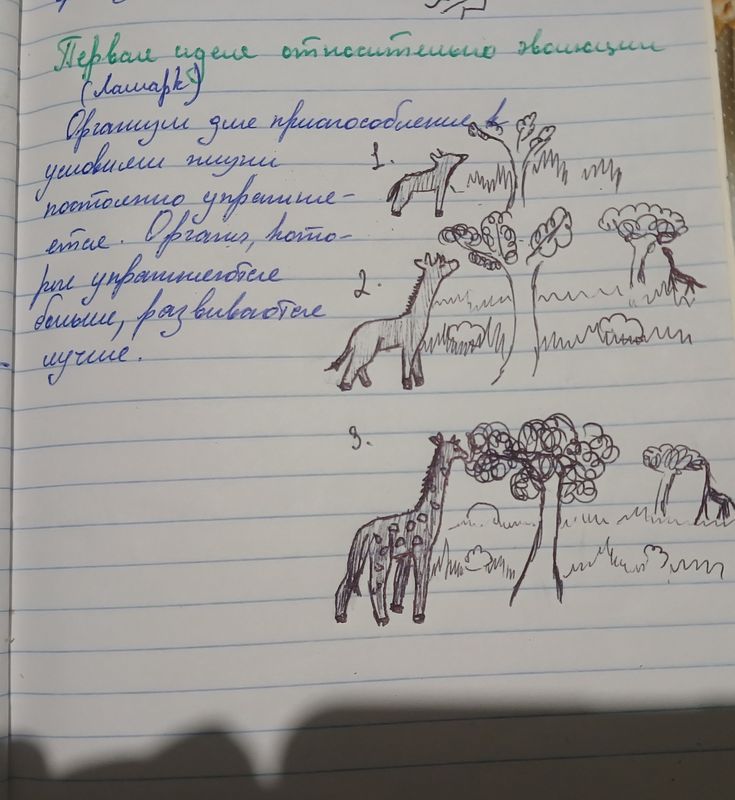 Первая идея относительно эволюции
(Ламарк)
Организм для приспособление к
условиям жизни
постоянно упражня-
ется. Органы, кото-
рые упражняются
больше, развиваются
лучше.
1.
2.
3.